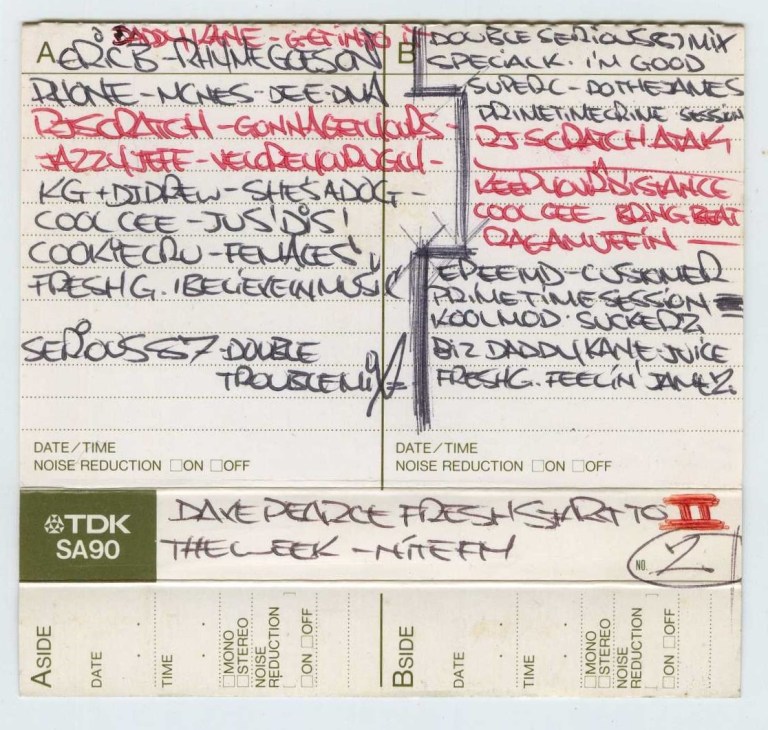 DADDY KANE - GET INTO it
A ERIC B - RHYME GOES ON
RHONE - MCNES - DEE - DNA
DJ SCRATCH - GONNAGETYOURS -
JAZZY JEFF -
KG + DJ DREW - SHE'S A DOG -
COOL CEE - JUS' DIS!
COOKYECRU - FEMALES'
FRESH G. I BELIEVE IN MUSIC
SERIOUS 87 - DOUBLE
TROUBLE MIX
DATE/TIME
NOISE REDUCTION ON OFF
B DOUBLE SERIOUS 87 MIX
SPECIAL K. I'M GOOD
SUPER C - DO THE JAMES
PRIMETIMECRINE SESSION
DJ SCRATCH ATAK
KEEP YOUR DISTANCE
COOL CEE BRING BEAT
RAGAMUFFIN
EPEEMD - CUSTOMER
PRIMETIME SESSION
KOOLMOD. SUCKERZ
BIZ DADDY KANE - JUICE
FRESH G. FEELIN' JAMEZ.
DATE/TIME
NOISE REDUCTION ON OFF
TDK
SA90
DAVE PEARCE FRESH START TO II
THE WEEK - NITE FM
NO. 2
A SIDE
DATE
TIME
MONO
STEREO
NOISE
REDUCTION
ON OFF
B SIDE
DATE
TIME
MONO
STEREO
NOISE
REDUCTION
ON OFF